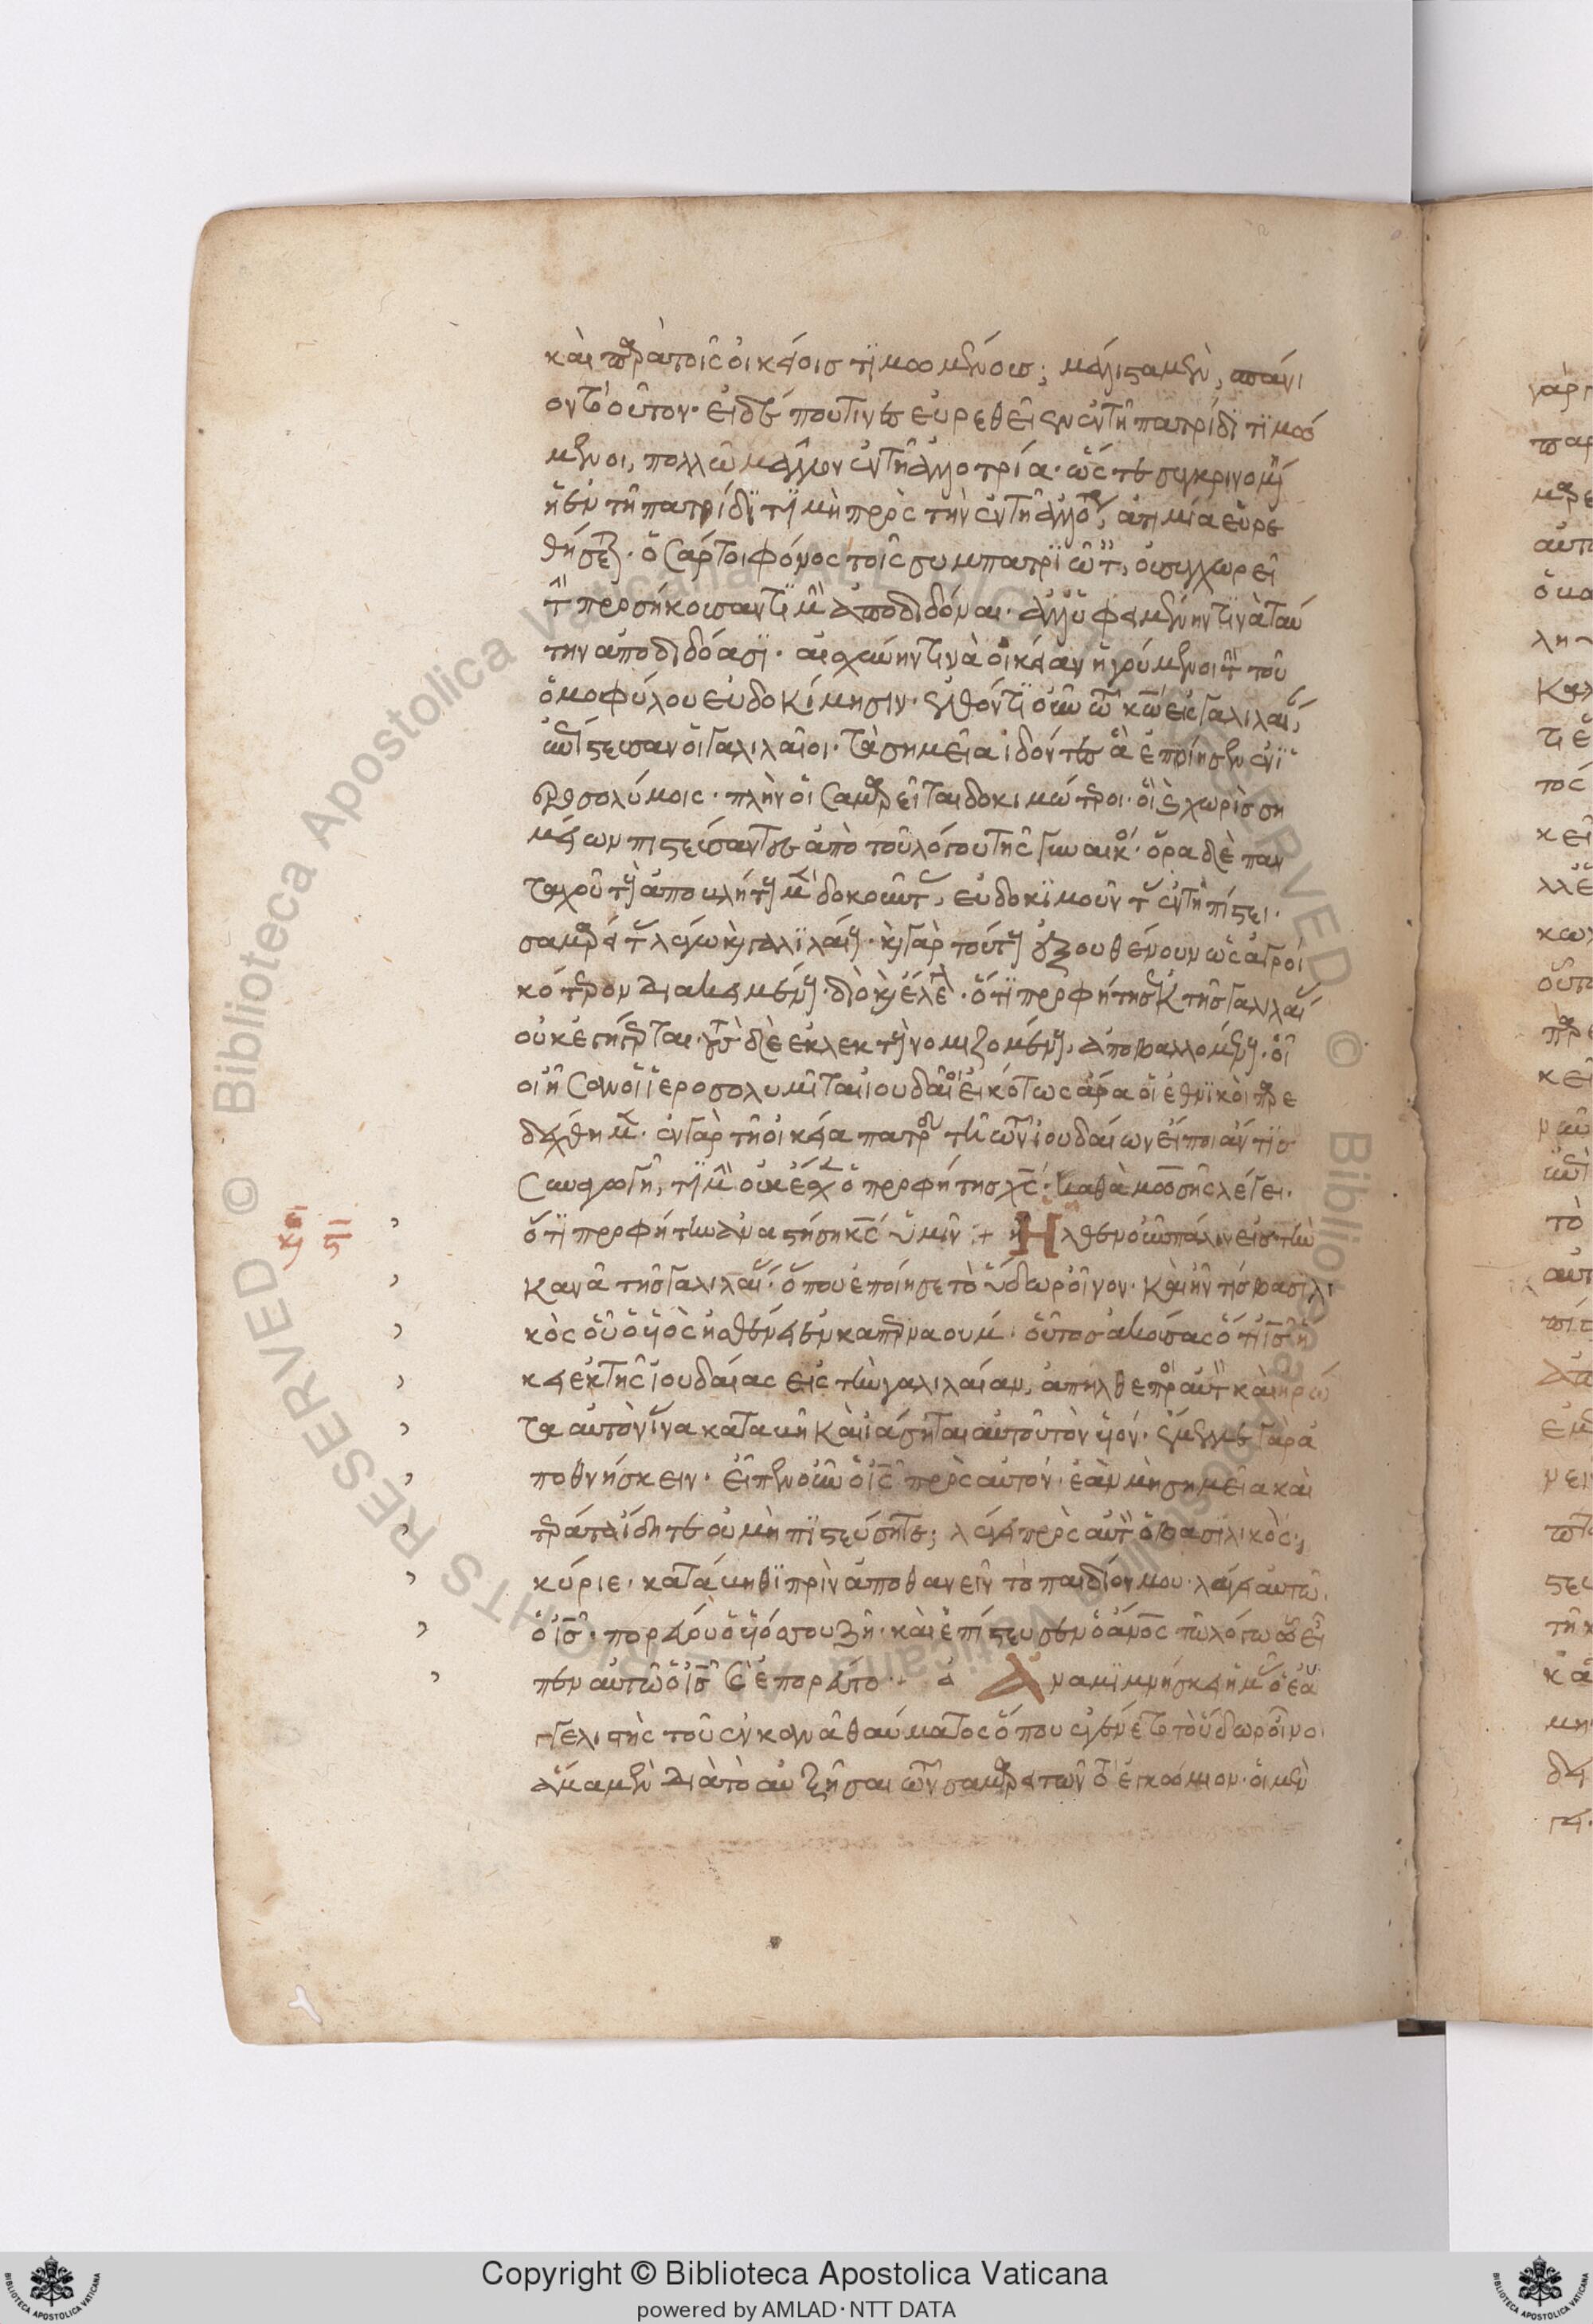 καὶ παρὰ τοῖς οἰκείοις τιμωμένους; μάλιστα μὲν, σπάνι
ον τὸ τοιοῦτον· εἰ δέ που τινὲς εὑρεθεῖεν ἐν τῇ πατρίδι τιμώ
μενοι, πολλῷ μᾶλλον ἐν τῇ ἀλλοτρία· ὥστε συγκρινομένη
ἡ ἐν τῇ πατρίδι τιμὴ πρὸς τὴν ἐν τῇ ἀλλοτρία, ἀτιμία εὑρε
θήσεται· ὁ γάρ τοι φθόνος τοῖς συμπατριώταις, οὐ συγχωρεῖ
τὴν προσήκουσαν τιμὴν ἀποδιδόναι· ἀλλ' ὑφειμένην τινὰ ταύ
την ἀποδιδόασι· αἰσχύνην τινὰ οἰκείαν ἡγούμενοι τὴν τοῦ
ὁμοφύλου εὐδοκίμησιν· ἐλθόντι οὖν τῷ κω εἰς Γαλιλαίαν,
ἐπίστευσαν οἱ Γαλιλαῖοι· τὰ σημεῖα ἰδόντες ἃ ἐποίησεν ἐν ἱ
εροσολύμοις· πλὴν οἱ Σαμαρεῖται δοκιμώτεροι· οἳ καὶ χωρὶς ση
μείων πιστεύσαντες ἀπὸ τοῦ λόγου τῆς γυναικός· ὅρα δὲ παν
ταχοῦ τοὺς ἀποβλήτους μὲν δοκοῦντας, εὐδοκιμοῦντας ἐν τῇ πίστει·
σαμαρείτας λέγω καὶ γαλιλαίους· καὶ γὰρ τούτους ἐξουθένουν ὡς ἀγροι
κότερον διακειμένους· διὸ καὶ ἔλεγον· ὅτι προφήτης ἐκ τῆς Γαλιλαίας
οὐκ ἐγήγερται· τοὺς δὲ ἐκλεκτοὺς νομιζομένους, ἀποβαλλομένους· οἷ
οι ἦσαν οἱ ἱεροσολυμῖται ἰουδαῖοι εἰκότως ἄρα οἱ ἐθνικοὶ παρε
δέχθημεν· ἐν γὰρ τῇ οἰκεία πατρίδι τῇ τῶν ἰουδαίων εἴποι ἄν τις
συναγωγῇ, τιμὴν οὐκ ἔσχεν ὁ προφήτης χς· καθὰ μωσῆς λέγει·
ὅτι προφήτην ἀναστήσει κς ὑμῖν :+ Ἦλθεν οὖν πάλιν εἰς τὴν
κανᾶ τῆς Γαλιλαίας· ὅπου ἐποίησε τὸ ὕδωρ οἶνον· καὶ ἦν τίς βασιλι
κὸς οὗ ὁ υἱὸς ἠσθένει ἐν καπερναούμ· οὗτος ἀκούσας ὅτι ις ἥ
κει ἐκ τῆς ἰουδαίας εἰς τὴν γαλιλαίαν, ἀπῆλθε πρὸς αὐτὸν καὶ ἠρώ
τα αὐτὸν ἵνα καταβῇ καὶ ἰάσηται αὐτοῦ τὸν υἱόν· ἔμελλε γὰρ ἀ
ποθνήσκειν· εἶπεν οὖν ὁ ις πρὸς αὐτόν· ἐὰν μὴ σημεῖα καὶ
τέρατα ἴδητε οὐ μὴ πιστεύσητε; λέγει πρὸς αὐτὸν ὁ βασιλικὸς·,
κύριε· κατάβηθι πρὶν ἀποθανεῖν τὸ παιδίον μου· λέγει αὐτῷ.
ὁ ις· πορεύου ὁ υἱός σου ζῇ· καὶ ἐπίστευσεν ὁ ἄνος τῷ λόγω ᾧ εἶ
πεν αὐτῷ ὁ ις καὶ ἐπορεύετο :+ Ἀναμιμνήσκει ἡμᾶς ὁ εὐα
γγελιστὴς τοῦ ἐν κανᾶ θαύματος ὅπου ἐγένετο τὸ ὕδωρ οἶνο
ἅμα μὲν διὰ τὸ αὐξῆσαι τῶν σαμαρειτῶν τὸ ἐγκώμιον· οἱ μὲν